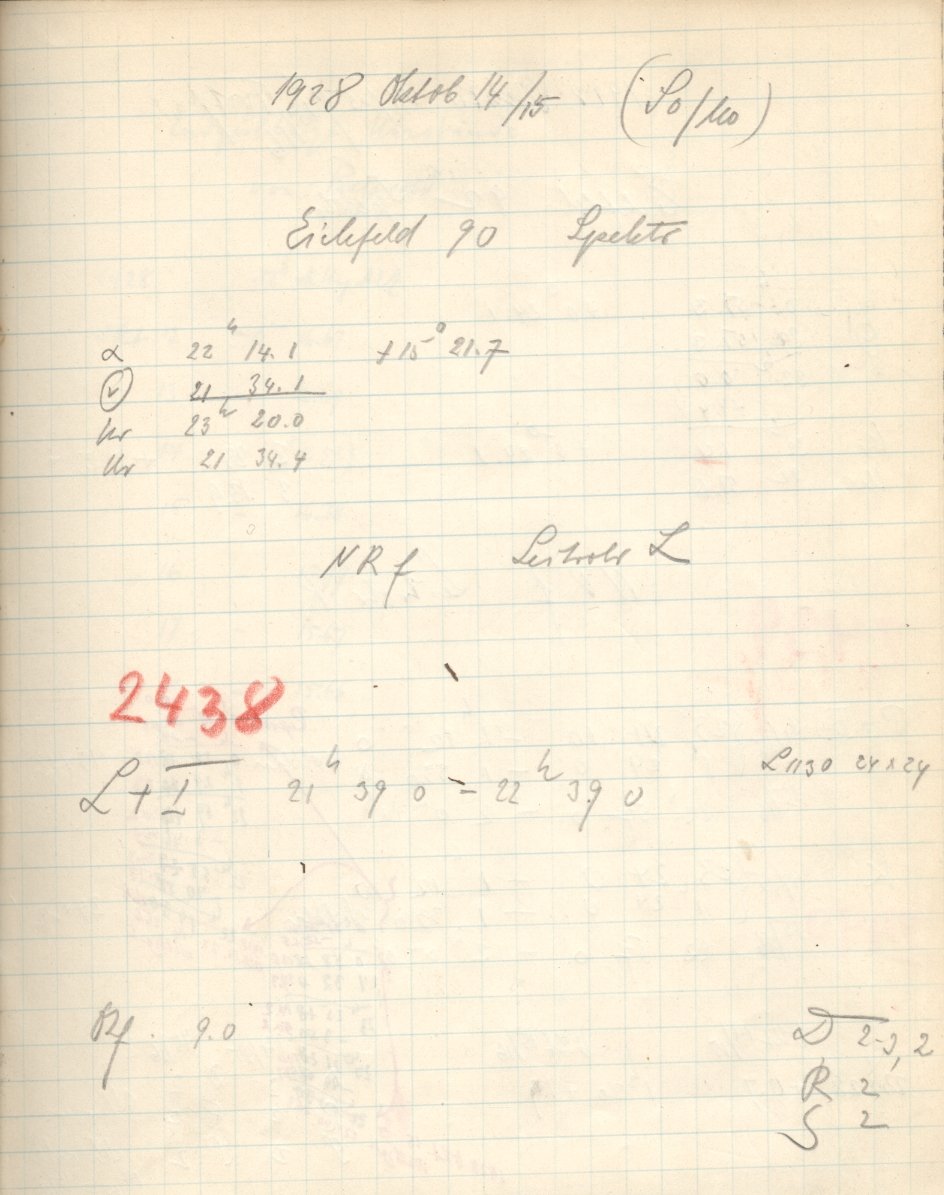 1928 Oktob 14/15 (So/Mo)
Eichfeld 90 Spektr
α 22h 14.1 +15° 21.7
21 34.1
Ur 23h 20.0
Ur 21 34.4
NR f Leitrohr L
2438
L + I 21h 39 0 = 22h 39 0 L 1130 24 x 24
Rf. 9.0
D 2-3, 2
R 2
S 2